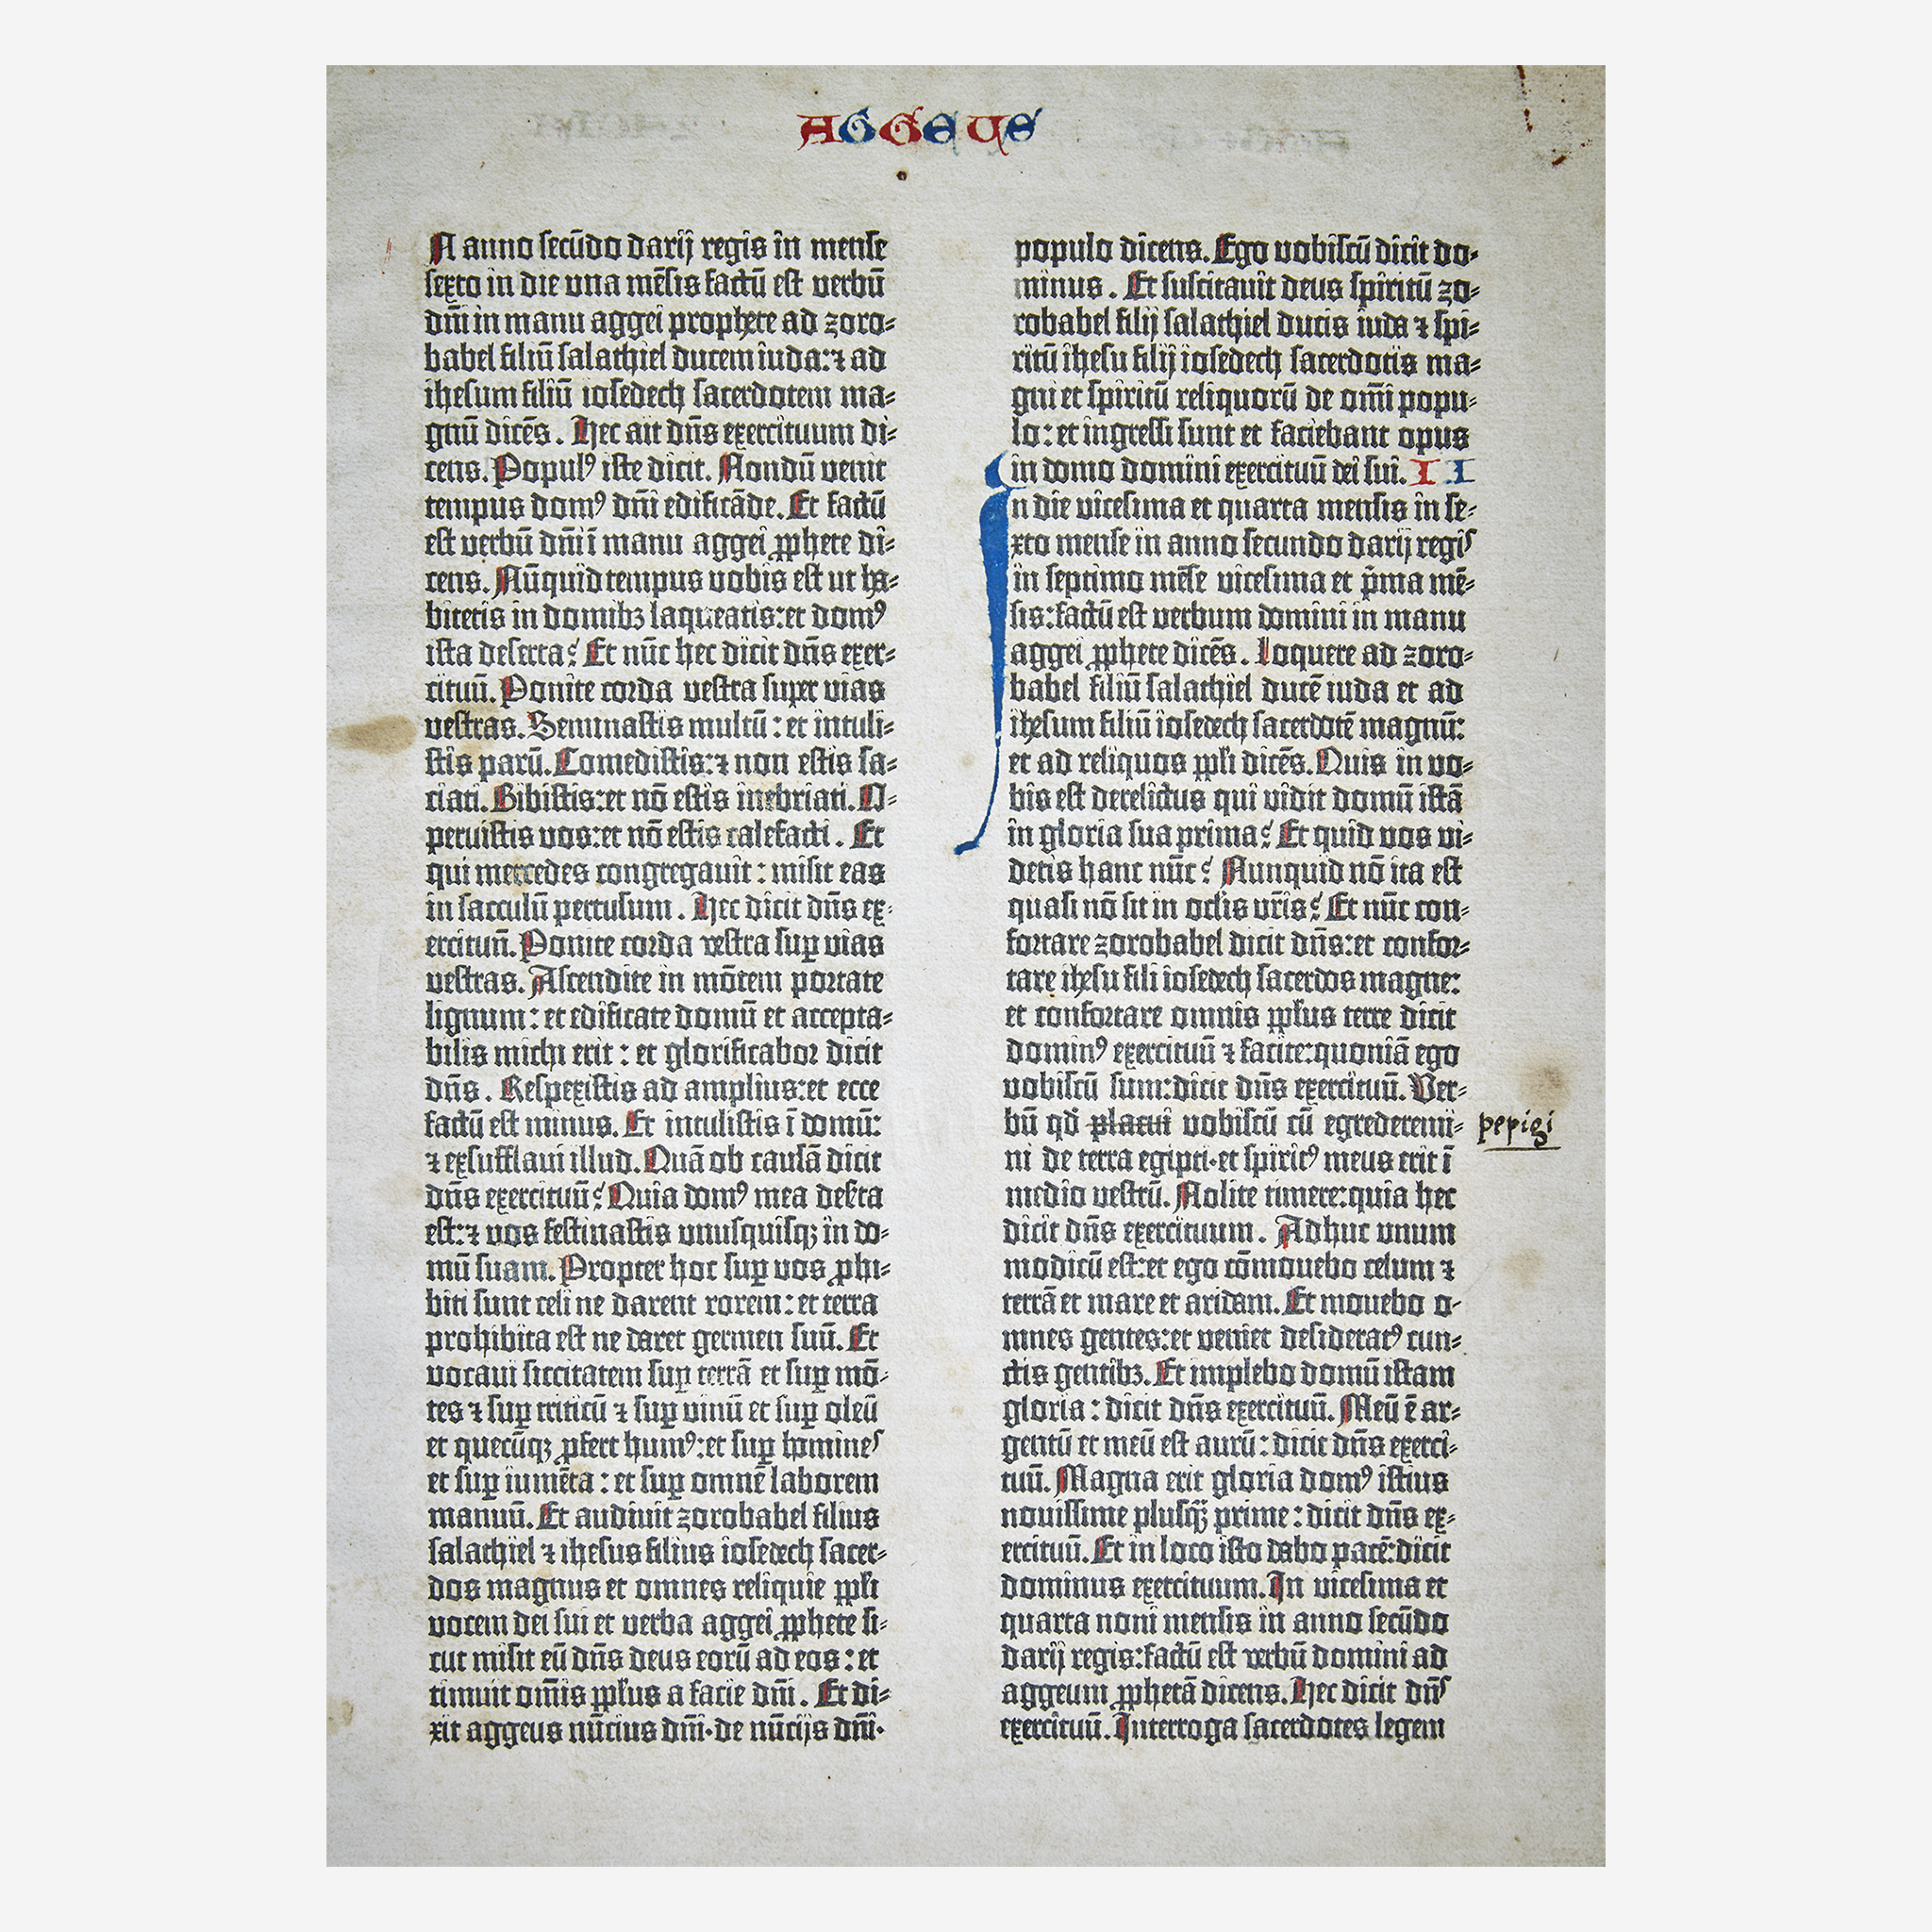 AGGEUS
N anno secūdo darij regis in mense
sexto in die una mēsis factū est verbū
dm̄i in manu aggei prophete ad zoro=
babel filiū salathiel ducem iuda: ⁊ ad
ihesum filiū iosedech sacerdotem ma=
gnū dicēs. Hec ait dn̄s exercituum di=
cens. Populꝰ iste dicit. Nondū venit
tempus domꝰ dn̄i edificāde. Et factū
est verbū dn̄i ī manu aggei ꝓphete di=
cens. Nūquid tempus vobis est ut ha=
bitetis in domibꝫ laqueatis: et domꝰ
ista deserta? Et nūc hec dicit dn̄s exer=
cituū. Ponite corda vestra super vias
vestras. Seminastis multū: et intuli=
stis parū. Comedistis: ⁊ non estis sa=
ciati. Bibistis: et nō estis inebriati. O=
peruistis vos: et nō estis calefacti. Et
qui mercedes congregauit: misit eas
in sacculū pertusum. Hec dicit dn̄s ex=
ercituū. Ponite corda vestra suꝑ vias
vestras. Ascendite in mōtem portate
lignum: et edificate domū et accepta=
bilis michi erit: et glorificabor dicit
dn̄s. Respexistis ad amplius: et ecce
factū est minus. Et intulistis ī domū:
⁊ exsufflaui illud. Quā ob causā dicit
dn̄s exercituū? Quia domꝰ mea deẜta
est: ⁊ vos festinastis unusquisqꝫ in do=
mū suam. Propter hoc suꝑ vos ꝓhi=
biti sunt celi ne darent rorem: et terra
prohibita est ne daret germen suū. Et
vocaui siccitatem suꝑ terrā et suꝑ mō=
tes ⁊ suꝑ triticū ⁊ suꝑ vinū et suꝑ oleū
et quecūqꝫ ꝓfert humꝰ: et suꝑ homines
et suꝑ iumēta: et suꝑ omnē laborem
manuū. Et audiuit zorobabel filius
salathiel ⁊ ihesus filius iosedech sacer=
dos magnus et omnes reliquie ppl̄i
vocem dei sui et verba aggei ꝓphete si=
cut misit eū dn̄s deus eorū ad eos: et
timuit om̄is ppl̄us a facie dm̄i. Et di=
xit aggeus nūcius dm̄i·de nūcijs dm̄i·
populo dicens. Ego vobiscū dicit do=
minus. Et suscitauit deus spiritū zo=
robabel filij salathiel ducis iuda ⁊ spi=
ritū ihesu filij iosedech sacerdotis ma=
gni et spiritū reliquorū de om̄i popu=
lo: et ingressi sunt et faciebant opus
in domo domini exercituū dei sui. II
In die vicesima et quarta mensis in se=
xto mense in anno secundo darij regis
in septimo mēse vicesima et p̄ma mē=
sis: factū est verbum domini in manu
aggei ꝓphete dicēs. Loquere ad zoro=
babel filiū salathiel ducē iuda et ad
ihesum filiū iosedech sacerdotē magnū:
et ad reliquos ppl̄i dicēs. Quis in vo=
bis est derelictus qui vidit domū istā
in gloria sua prima? Et quid vos vi=
detis hanc nūc? Nunquid nō ita est
quasi nō sit in oclis vr̄is? Et nūc con=
fortare zorobabel dicit dn̄s: et confor=
tare ihesu fili iosedech sacerdos magne:
et confortare omnis ppl̄us terre dicit
dominꝰ exercituū ⁊ facite: quoniā ego
vobiscū sum: dicit dn̄s exercituū. Ver=
bū qd̄ placui vobiscū cū egrederemi= pepigi
ni de terra egipti·et spiritꝰ meus erit ī
medio vestrū. Nolite timere: quia hec
dicit dn̄s exercituum. Adhuc unum
modicū est: et ego cōmouebo celum ⁊
terrā et mare et aridam. Et mouebo o=
mnes gentes: et veniet desideratꝰ cun=
ctis gentibꝫ. Et implebo domū istam
gloria: dicit dn̄s exercituū. Meū ē ar=
gentū et meū est aurū: dicit dn̄s exerci=
tuū. Magna erit gloria domꝰ istius
nouissime plusqꝫ̄ prime: dicit dn̄s ex=
ercituū. Et in loco isto dabo pacē: dicit
dominus exercituum. In vicesima et
quarta noni mensis in anno secūdo
darij regis: factū est verbū domini ad
aggeum ꝓphetā dicens. Hec dicit dn̄s
exercituū. Interroga sacerdotes legem